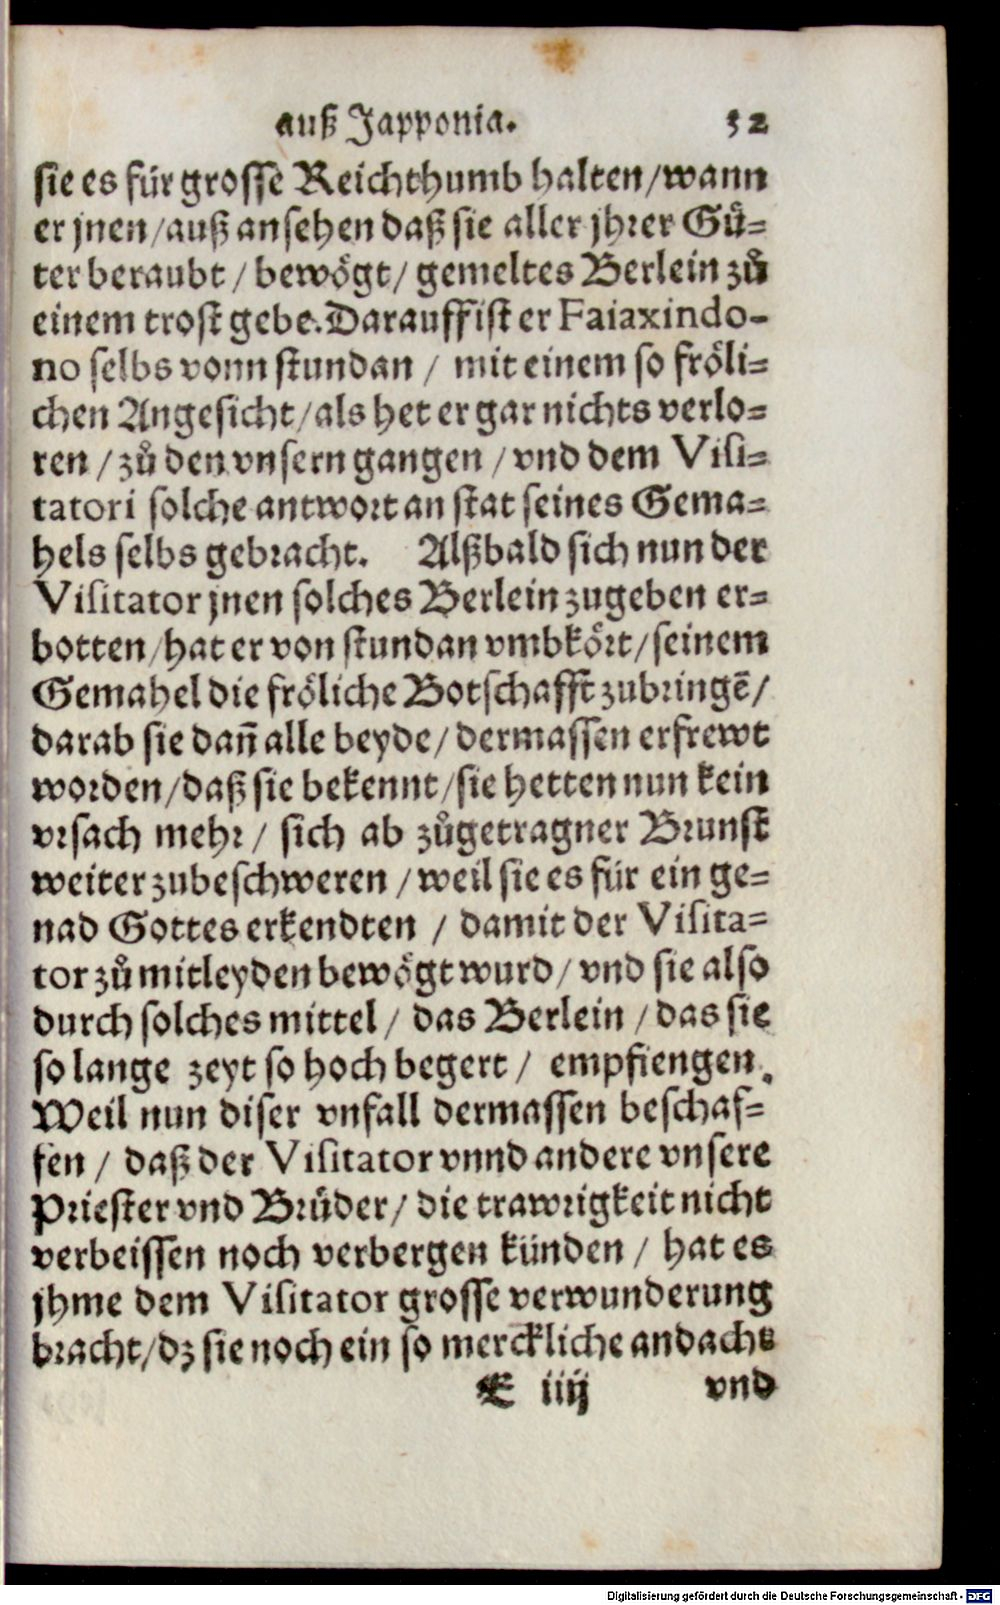 auß Japponia. 52
sie es für grosse Reichthumb halten/wann
er jnen/auß ansehen daß sie aller jhrer Guͤ=
ter beraubt/ bewoͤgt/ gemeltes Berlein zuͦ
einem trost gebe. Darauff ist er Faiaxindo-
no selbs vonn stundan / mit einem so froͤli=
chen Angesicht/als het er gar nichts verlo=
ren / zuͦ den vnsern gangen / vnd dem Visi=
tatori solche antwort an stat seines Gema=
hels selbs gebracht. Alßbald sich nun der
Visitator jnen solches Berlein zugeben er=
botten/hat er von stundan vmbkoͤrt/seinem
Gemahel die froͤliche Botschafft zubringē/
darab sie dañ alle beyde/ dermassen erfrewt
worden/daß sie bekennt/sie hetten nun kein
vrsach mehr/ sich ab zuͦgetragner Brunst
weiter zubeschweren /weil sie es für ein ge=
nad Gottes erkendten / damit der Visita=
tor zuͦ mitleyden bewoͤgt wurd/ vnd sie also
durch solches mittel/ das Berlein /das sie
so lange zeyt so hoch begert/ empfiengen.
Weil nun diser vnfall dermassen beschaf=
fen / daß der Visitator vnnd andere vnsere
Priester vnd Bruͤder/ die trawrigkeit nicht
verbeissen noch verbergen künden / hat es
jhme dem Visitator grosse verwunderung
bracht/dz sie noch ein so merckliche andacht
E iiij vnd
Digitalisierung gefördert durch die Deutsche Forschungsgemeinschaft - DFG